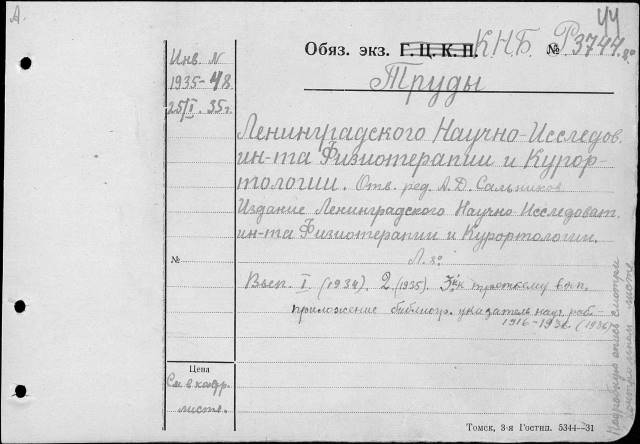 А.
44
Обяз. экз. Г. Ц. К. П. КНБ № Р3744.8°
Инв. N
1935-48
25/I. 35г.
Труды
Ленинградского Научно-Исследов.
ин-та Физиотерапии и Курор-
тологии. Отв. ред. А. Д. Сальников
Издание Ленинградского Научно Исследоват.
ин-та Физиотерапии и Курортологии.
Л. 8°
№
Вып. I. (1934). 2. (1935). к третьему вып.
приложение библиогр. указатель науч. раб.
1916-1936. (1936)
Цена
См. в кадр.
листе.
Томск, 3-я Гостип. 5344—31
опись смотри
листе